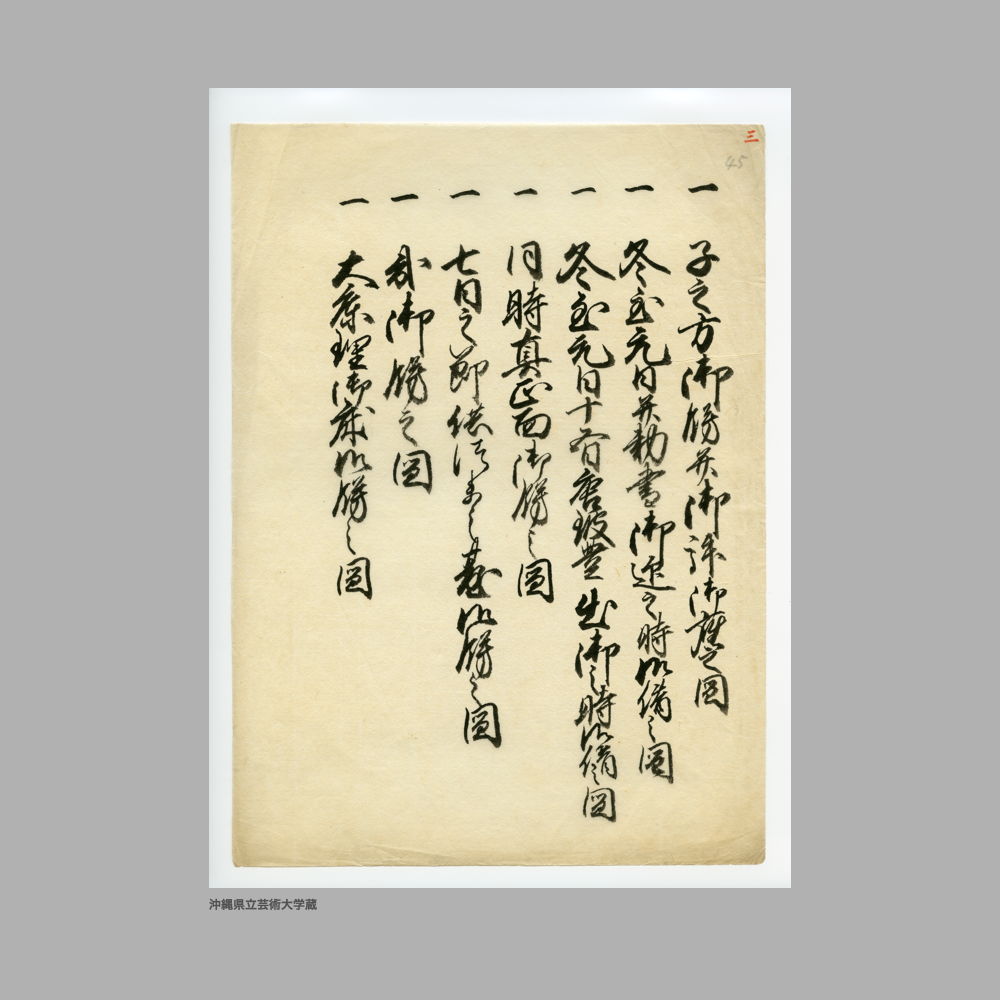 三
45
一 子之方御餝并御詠御蘆之図
一 冬至元日并勅書御迎之時御備之図
一 冬至元日十五日唐玻豊出御之時御備之図
一 同時真正面御餝之図
一 七月之節 御餝之図
一 御餝之図
一 大台理御座御餝之図
沖縄県立芸術大学蔵